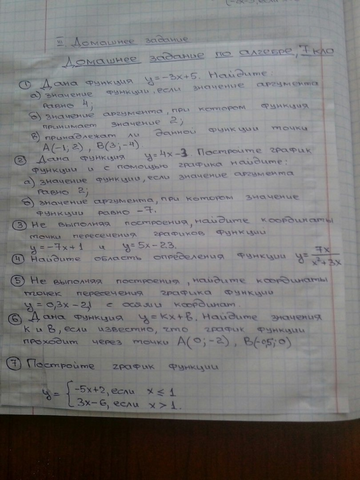 Домашнее задание
Домашнее задание по алгебре, 7 кл
① Дана функция y=-3x+5. Найдите
а) значение функции, если значение аргумента
равно 4;
б) значение аргумента, при котором функция
принимает значение 2;
в) принадлежат ли данной функции точки
A(-1;2), B(3;-4)
② Дана функция y=4x-3. Постройте график
функции и с помощью графика найдите:
а) значение функции, если значение аргумента
равно 2;
б) значение аргумента, при котором значение
функции равно -7.
③ Не выполняя построения, найдите координаты
точки пересечения графиков функции
y=-7x+1 и y=5x-23.
④ Найдите область определения функции y=7x/(x²+3x)
⑤ Не выполняя построения, найдите координаты
точек пересечения графика функции
y=0,3x-21 с осями координат.
⑥ Дана функция y=Kx+B. Найдите значения
K и B, если известно, что график функции
проходит через точки A(0;-2), B(-0,5;0)
⑦ Постройте график функции
y={-5x+2, если x≤1
3x-6, если x>1.